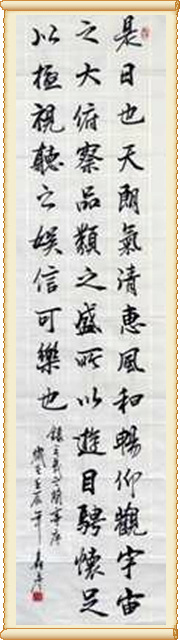 是日也天朗氣清惠風和暢仰觀宇宙
之大俯察品類之盛所以遊目騁懷足
以極視聽之娛信可樂也
錄王羲之蘭亭序
歲在壬辰年